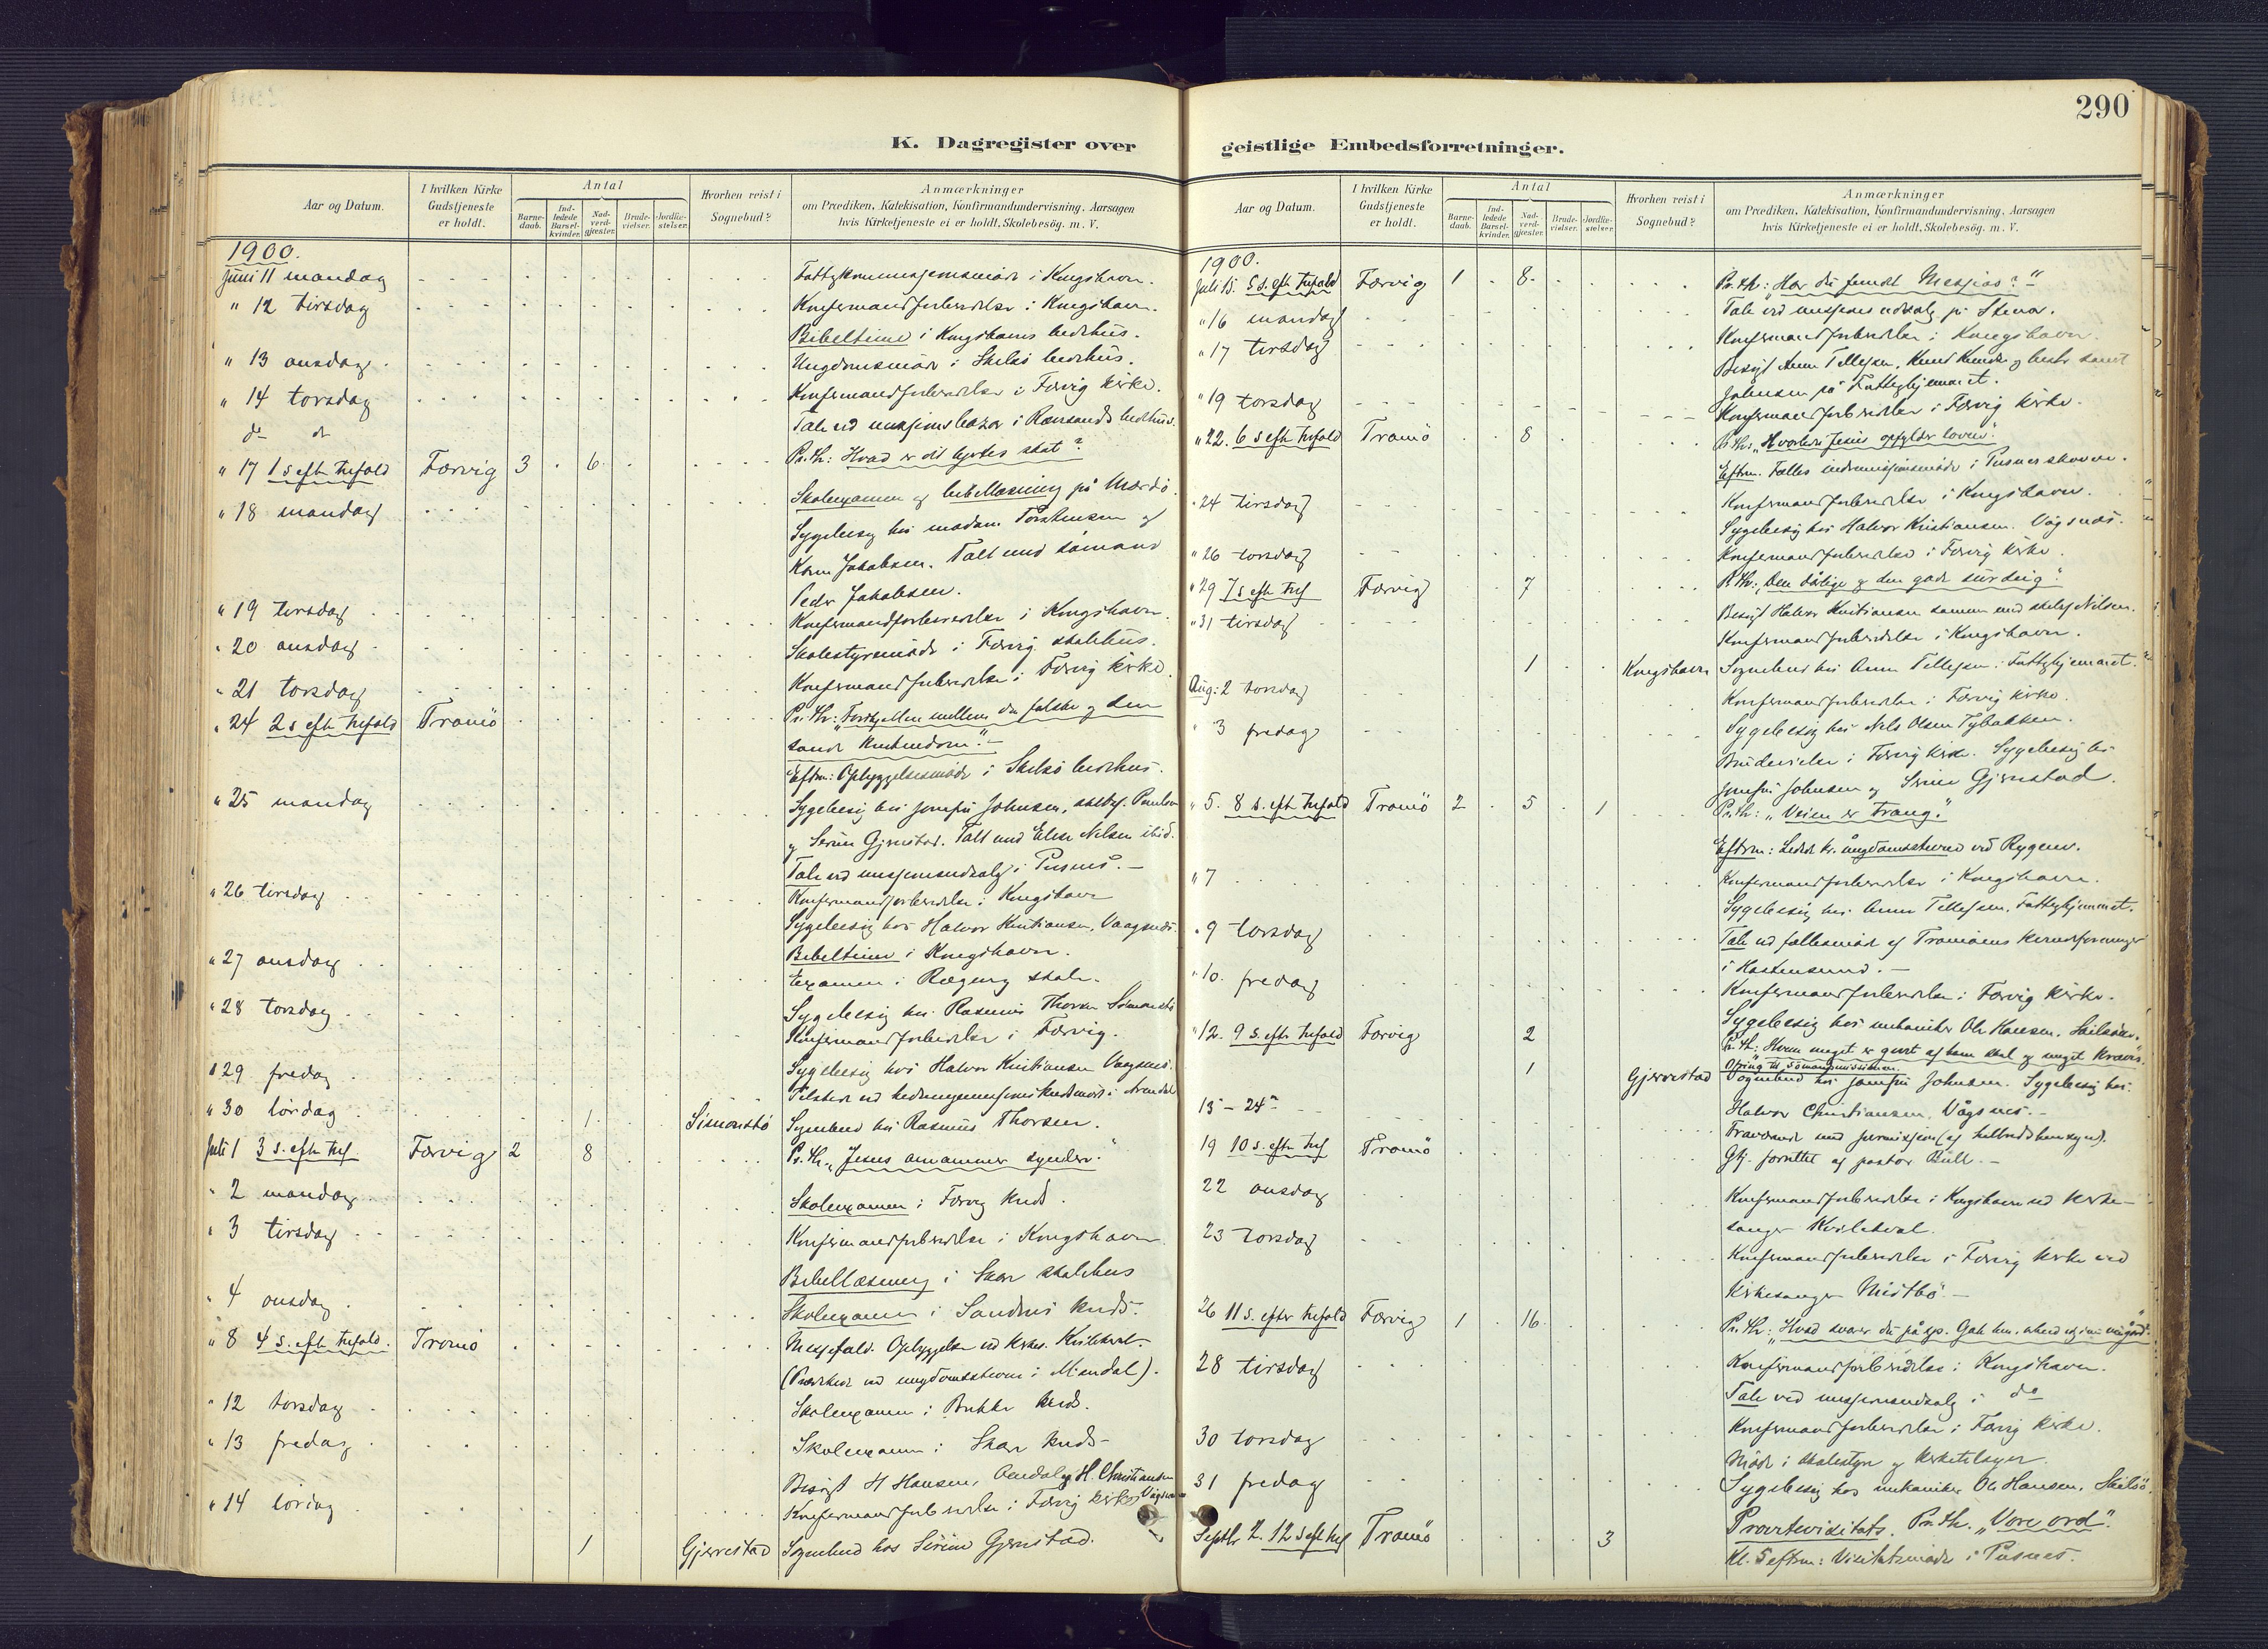 290
K. Dagregister over
Aar og Datum.
I hvilken Kirke Gudstjeneste er holdt.
Antal
Barne-daab.
Ind-ledede Barsel-kvinder.
Nad-verd-gjæster.
Brude-vielser.
Jordfæ-stelser.
Hvorhen reist i Sognebud?
Anmærkninger
om Prædiken, Katekisation, Konfirmandundervisning, Aarsagen
hvis Kirketjeneste ei er holdt, Skolebesög. m. V.
1900.
Juni 11 mandag Fattigkommisjonsmøde i Kongshavn.
" 12 tirsdag Konfirmandforberedelse i Kongshavn.
Bibeltime i Kongshavns bedehus.
" 13 onsdag Ungdomsmøde i Skilsö bedehus.
" 14 torsdag Konfirmandforberedelse i Færvig kirke.
do do Tale ved missjonsbazar i Revesands bedehus.
" 17 1 s eft trefold Færvig 3 6 Pr. th: Hvad er dit hjertes skat?
" 18 mandag Skolexamen og bibellæsning på Mærdö.
Sygebesøg hos madam Torstensen og
Jakobsen. Talt med sömand
Peder Jakobsen.
" 19 tirsdag Konfirmandforberedelse i Kongshavn.
" 20 onsdag Skolestyremøde i Færvig skolehus.
" 21 torsdag Konfirmandforberedelse i Færvig kirke.
" 24 2 s efth trefold Tromö Pr. th: "Forskjellen mellem den falske og den
sande kristendom." -
Eftm: Opbyggelsesmøde i Skilsö bedehus.
" 25 mandag Sygebesøg hos jomfru Johnsen,
og Serine Gjervstad. Talt med Elise Nilsen ibid.
Tale ved missjonsudsalg i Pusnes. -
" 26 tirsdag Konfirmandforberedelse i Kongshavn
Sygebesøg hos Halvor Kristiansen, Vaagsnes.
" 27 onsdag Bibeltime i Kongshavn.
Examen i skole.
" 28 torsdag Sygebesøg hos Rasmus Thorsen Simonstö
Konfirmandforberedelse i Færvig.
" 29 fredag Sygebesøg hos Halvor Kristiansen Vaagsnes.
Tilstede ved i Arendal
" 30 lördag 1 Simonstö Sognebud hos Rasmus Thorsen.
Juli 1 3 s. efth tref Færvig 2 8 Pr. th. "Jesus annammer syndere."
" 2 mandag Skolexamen i Færvig kreds.
" 3 tirsdag Konfirmandforberedelse i Kongshavn
Bibellæsning i Skare skolehus
" 4 onsdag Skolexamen i Sandnes kreds.
" 8 4 s. efth trefold. Tromö Messefald. Opbyggelse ved kirkes. Kvilehat.
(Prædiken ved ungdomsstevne i Mandal).
" 12 torsdag Skolexamen i Brække kreds.
" 13 fredag Skolexamen i Skare kreds.
Besøgt H Hansen, H. Christiansen Vågsnes
" 14 lördag Konfirmandforberedelse i Færvig kirke
1 Gjervestad Sognebud hos Serine Gjervstad.
geistlige Embedsforretninger.
Aar og Datum.
I hvilken Kirke Gudstjeneste er holdt.
Antal
Barne-daab.
Ind-ledede Barsel-kvinder.
Nad-verd-gjæster.
Brude-vielser.
Jordfæ-stelser.
Hvorhen reist i Sognebud?
Anmærkninger
om Prædiken, Katekisation, Konfirmandundervisning, Aarsagen
hvis Kirketjeneste ei er holdt, Skolebesög. m. V.
1900.
Juli 15. 5 s. efth trefold Færvig 1 8. Pr. th: "Har du fundet Messias?"
" 16 mandag Tale ved missjons udsalg på
" 17 tirsdag Konfirmandforberedelse i Kongshavn.
Besøgt Anne Tellefsen, samt
Johnsen på Fattighjemmet.
" 19 torsdag Konfirmandforberedelse i Færvig kirke.
" 22. 6 s efth trefold Tromö 8 Pr. th: "Hvorledes Jesus opfylder loven".
Eftm. Fælles indremissjonsmøde i Pusnesskoven.
" 24 tirsdag Konfirmandforberedelse i Kongshavn.
Sygebesøg hos Halvor Kristiansen. Vågsnæs.
" 26 torsdag Konfirmandforberedelse i Færvig kirke.
" 29 7 s efth tref Færvig 7 Pr. th: "Den dårlige og den gode surdeig".
" 31 tirsdag Besøgt Halvor Kristiansen sammen med Nilsen.
Konfirmandforberedelse i Kongshavn.
1 Kongshavn Sognebud hos Anne Tellefsen. Fattighjemmet.
Aug: 2 torsdag Konfirmandforberedelse i Færvig kirke.
" 3 fredag Sygebesøg hos Nils Olsen Tybakken.
Brudevielse i Færvig kirke. Sygebesøg hos
jomfru Johnsen og Serine Gjervstad.
" 5. 8 s. efth trefold Tromö 2 5 1 Pr. th: "Veien er trang."
Eftm: Ledede kr. ungdomsstevne ved Rygene.
" 7 Konfirmandforberedelse i Kongshavn.
Sygebesøg hos Anne Tellefsen. Fattighjemmet.
" 9 torsdag Tale ved fællesmøde af Tromöens
i Hastensund. -
" 10. fredag Konfirmandforberedelse i Færvig kirke.
Sygebesøg hos mekaniker Ole Hansen. Skilsöen.
" 12. 9 s. efth trefold Færvig 2 Pr. th: "Hvem meget er givet af ham skal og meget kræves".
Ofring til Sömandsmissionen.
1 Gjervestad Sognebud hos jomfru Johnsen. Sygebesøg hos
Halvor Christiansen, Vågsnes. -
15 - 24de Fraværende med permisjon (af helbredshensyn).
19 10 s. efth tref Tromö Gtj. forrettet af pastor Bull. -
22 onsdag Konfirmandforberedelse i Kongshavn ved kirke-
sanger
23 torsdag Konfirmandforberedelse i Færvig kirke ved
kirkesanger Mistbö. -
26 11 s. efter trefold Færvig 1 16. Pr. th: "Hvad svarer du på sp. Gak hen, arbeid og i min vingård".
28 tirsdag Konfirmandforberedelse i Kongshavn.
Tale ved missjonsudsalg i do
30 torsdag Konfirmandforberedelse i Færvig kirke.
Møde i skolestyre og kirketilsyn.
31 fredag Sygebesøg hos mekaniker Ole Hansen. Skilsö.
Septbr 2. 12 s eft tref Tromö 3 Provstevisitats. Pr. th. "Vore ord".
Kl. 5 eftm: Visitatsmøde i Pusnes.